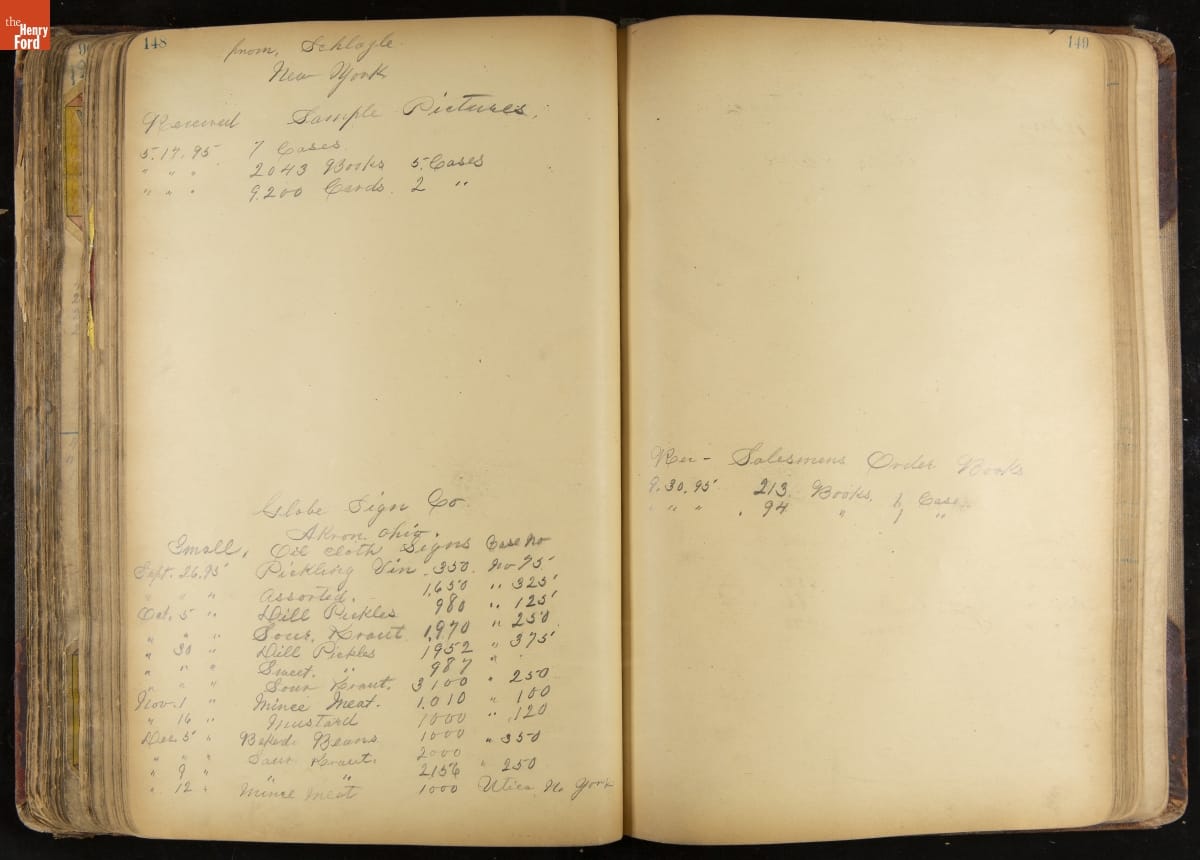 the
Henry
Ford
148
from, Schlagle.
New York
Received Sample Pictures,
5.17.95 7 Cases
" " " 2043 Books 5. Cases
" " " 9.200 Cards. 2 "
Globe Sign Co
Akron. Ohio.
Small, Oil cloth Signs Case No
Sept. 26.95 Pickling Vin .350. No 75
" " " Assorted. 1,650 " 325
Oct. 5 " Dill Pickles 980 " 125
" " " Sour. Kraut 1,970 " 250
" 30 " Dill Pickles 1952 " 375
" " " Sweet. " 987 "
" " " Sour Kraut. 3100 " 250
Nov. 1 " Mince Meat. 1.010 " 100
" 16 " Mustard 1000 " 120
Dec. 5 " Baked Beans 1000 " 350
" " " Sour Kraut. 2000
" 9 " " " 2156 " 250
" 12 " Mince Meat 1000 Utica, No York
149
Rec - Salesmens Order Books
9.30.95 213. Books. 1 Case.
" " " . 94 " 1 "